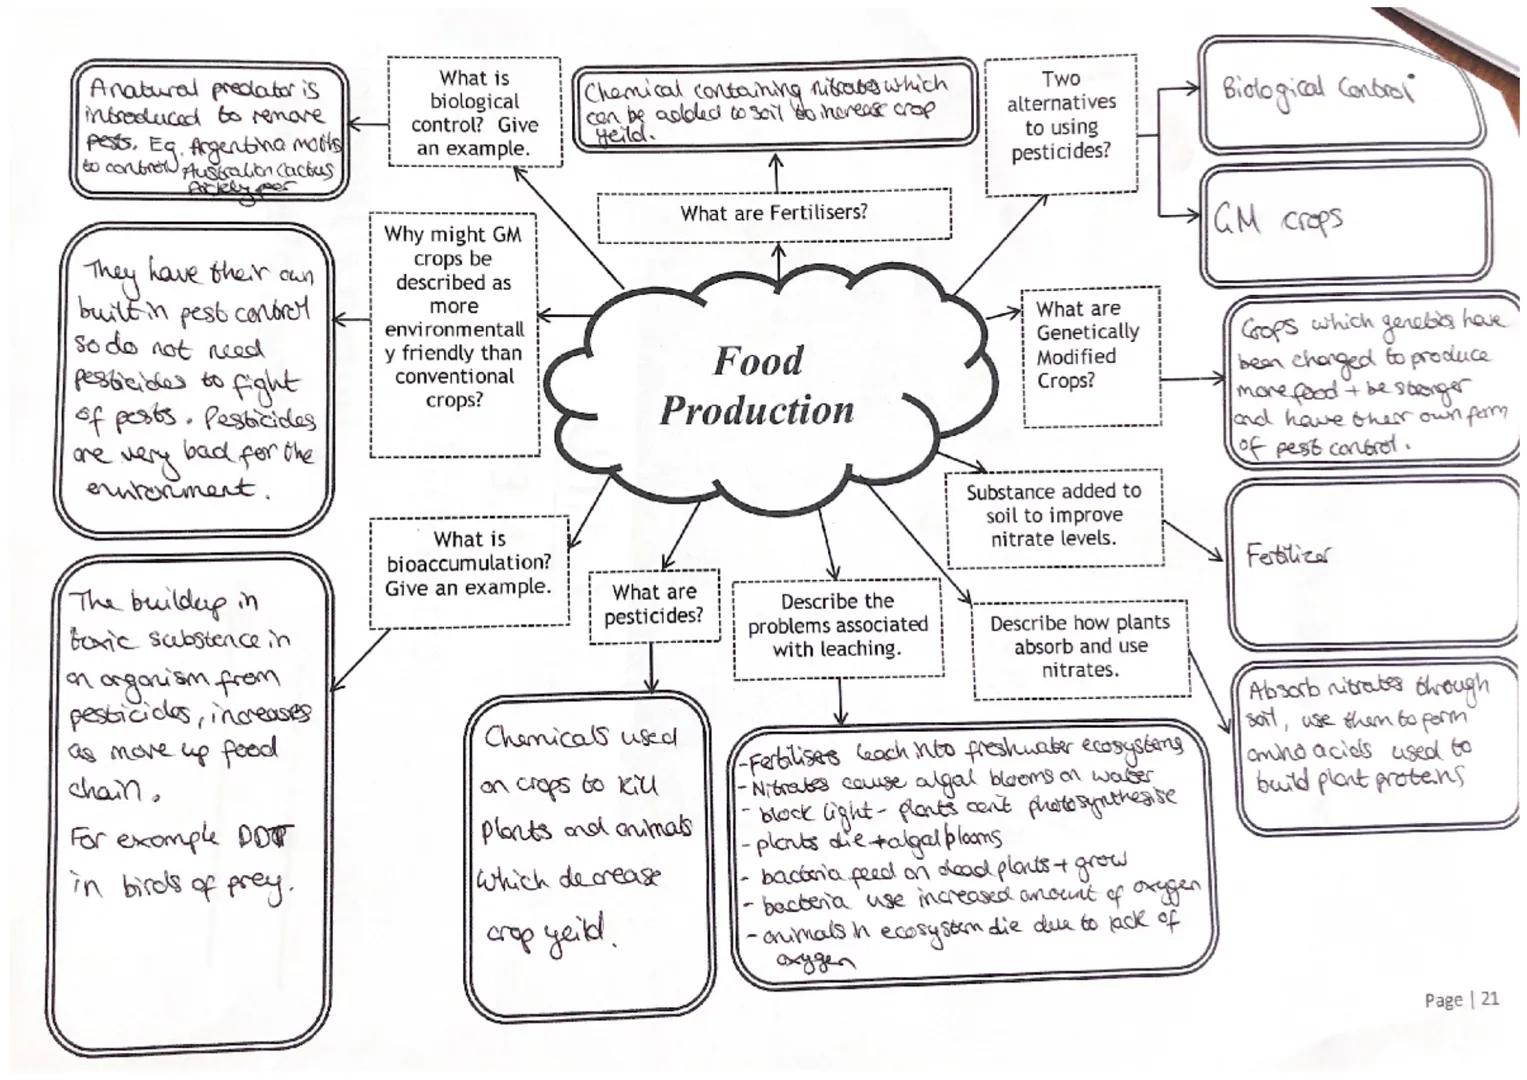 A natural predator is
introduced to remove
pests. Eg. Argentina moths
to control Australian cactus
Prickly pear
What is
biological
control? Give
an example.
Chemical containing nitrates which
can be added to soil to increase crop
yeild.
What are Fertilisers?
Two
alternatives
to using
pesticides?
Biological Control
GM crops
They have their own
built in pest control
so do not need
pesticides to fight
of pests. Pesticides
are very bad for the
environment.
Why might GM
crops be
described as
more
environmentall
y friendly than
conventional
crops?
Food
Production
What are
Genetically
Modified
Crops?
Crops which genetics have
been changed to produce
more food + be stronger
and have their own form
of pest control.
Substance added to
soil to improve
nitrate levels.
Fertilizer
What is
bioaccumulation?
Give an example.
The buildup in
toxic substance in
an organism from
pesticides, increases
as move up food
chain.
For example DDT
in birds of prey.
What are
pesticides?
Chemicals used
on crops to kill
plants and animals
which decrease
crop yeild.
Describe the
problems associated
with leaching.
-Fertilisers leach into freshwater ecosystems
-Nitrates cause algal blooms on water
- block light - plants cent photosynthesise
- plants die + algal blooms
- bacteria feed on dead plants + grow
- bacteria use increased amount of oxygen
- animals in ecosystem die due to lack of
oxygen
Describe how plants
absorb and use
nitrates.
Absorb nitrates through
soil, use them to form
amino acids used to
build plant proteins
Page | 21